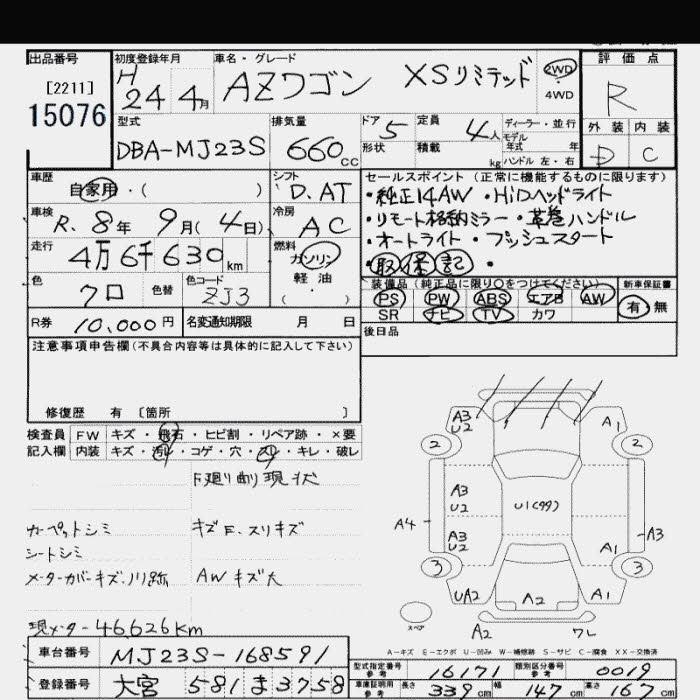 出品番号 初度登録年月 車名・グレード 評価点
[2211] H 24 4月 AZワゴン XSリミテッド 2WD 4WD R
15076
型式 排気量 ドア 5 定員 4人 ディーラー・並行 外装 内装
モデル 年式 年
DBA-MJ23S 660cc 形状 積載 kg ハンドル 左・右 D C
車歴 シフト セールスポイント (正常に機能するものに限ります)
自家用・( ) D.AT ・純正14AW ・HiDヘッドライト
車検 冷房 ・リモート格納ミラー ・革巻ハンドル
R. 8年 9月(4日) AC ・オートライト ・プッシュスタート
走行 燃料 ・取 保 記 ・
4万6千630km ガソリン 軽油 ( )
色 色替 色コード 装備品 (純正品に限り○をつけてください) 新車保証書
クロ ZJ3 PS PW ABS エアB AW 有・無
SR ナビ TV カワ
R券 10,000円 名変通知期限 月 日 後日品
注意事項申告欄(不具合内容等は具体的に記入して下さい)
修復歴 有 [箇所 ]
検査員 FW キズ・飛石・ヒビ割・リペア跡・×要
記入欄 内装 キズ・汚れ・コゲ・穴・スレ・キレ・破レ
F廻り削り現状
カーペットシミ キズE.スリキズ
シートシミ
メーターカバーキズ. AWキズ大
現メーター46,626km
A3 U2 A1
2 2
A3 U2 U1(99)
A4 A3 U2 A1 A3
3 3
UA2 A2 A1
スペア A2 ワレ
A-キズ E-エクボ U-凹み W-補修跡 S-サビ C-腐食 XX-交換済
車台番号 MJ23S-168591 型式指定番号 参考 16171 類別区分番号 参考 0019
登録番号 大宮 581 ま 3758 車庫証明用 参考 長さ 339cm 幅 147cm 高さ 167cm